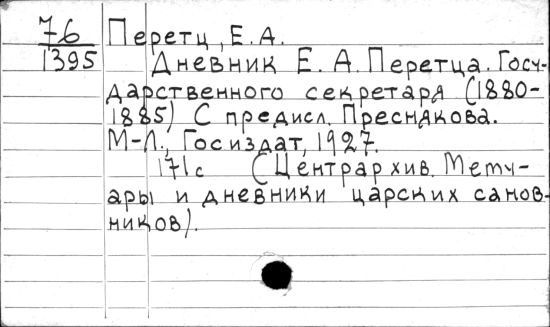 76 Перетц, Е.А.
1395 Дневник Е. А. Перетца. Госу-
дарственного секретаря (1880-
1885) С предисл. Преснякова.
М-Л., Госиздат, 1927.
171с (Центрархив. Мему-
ары и дневники царских санов-
ников).